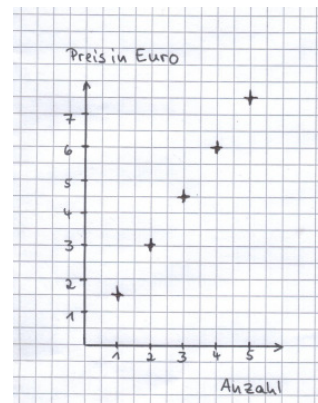 Preis in Euro
7
6
5
4
3
2
1
1 2 3 4 5
Anzahl